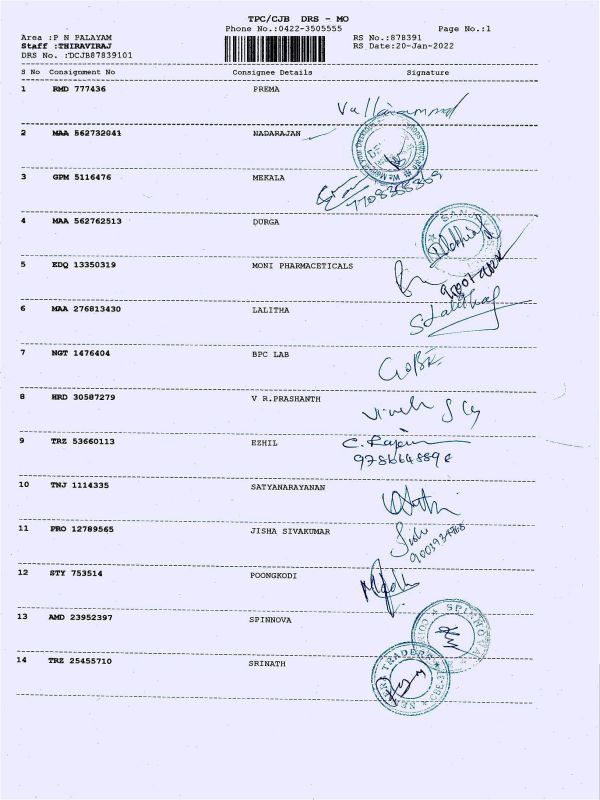 TPC/CJB DRS - MO
Phone No.:0422-3505555 Page No.:1
Area :P N PALAYAM RS No.:878391
Staff :THIRAVIRAJ RS Date:20-Jan-2022
DRS No. :DCJB87839101
S No Consignment No Consignee Details Signature
1 RMD 777436 PREMA
2 MAA 562732041 NADARAJAN
3 GPM 5116476 MEKALA
7708368369
4 MAA 562762513 DURGA
5 EDQ 13350319 MONI PHARMACETICALS
6 MAA 276813430 LALITHA
7 NGT 1476404 BPC LAB
8 HRD 30587279 V R.PRASHANTH
9 TRZ 53660113 EZHIL
10 TNJ 1114335 SATYANARAYANAN
11 PRO 12789565 JISHA SIVAKUMAR
12 STY 753514 POONGKODI
13 AMD 23952397 SPINNOVA
14 TRZ 25455710 SRINATH